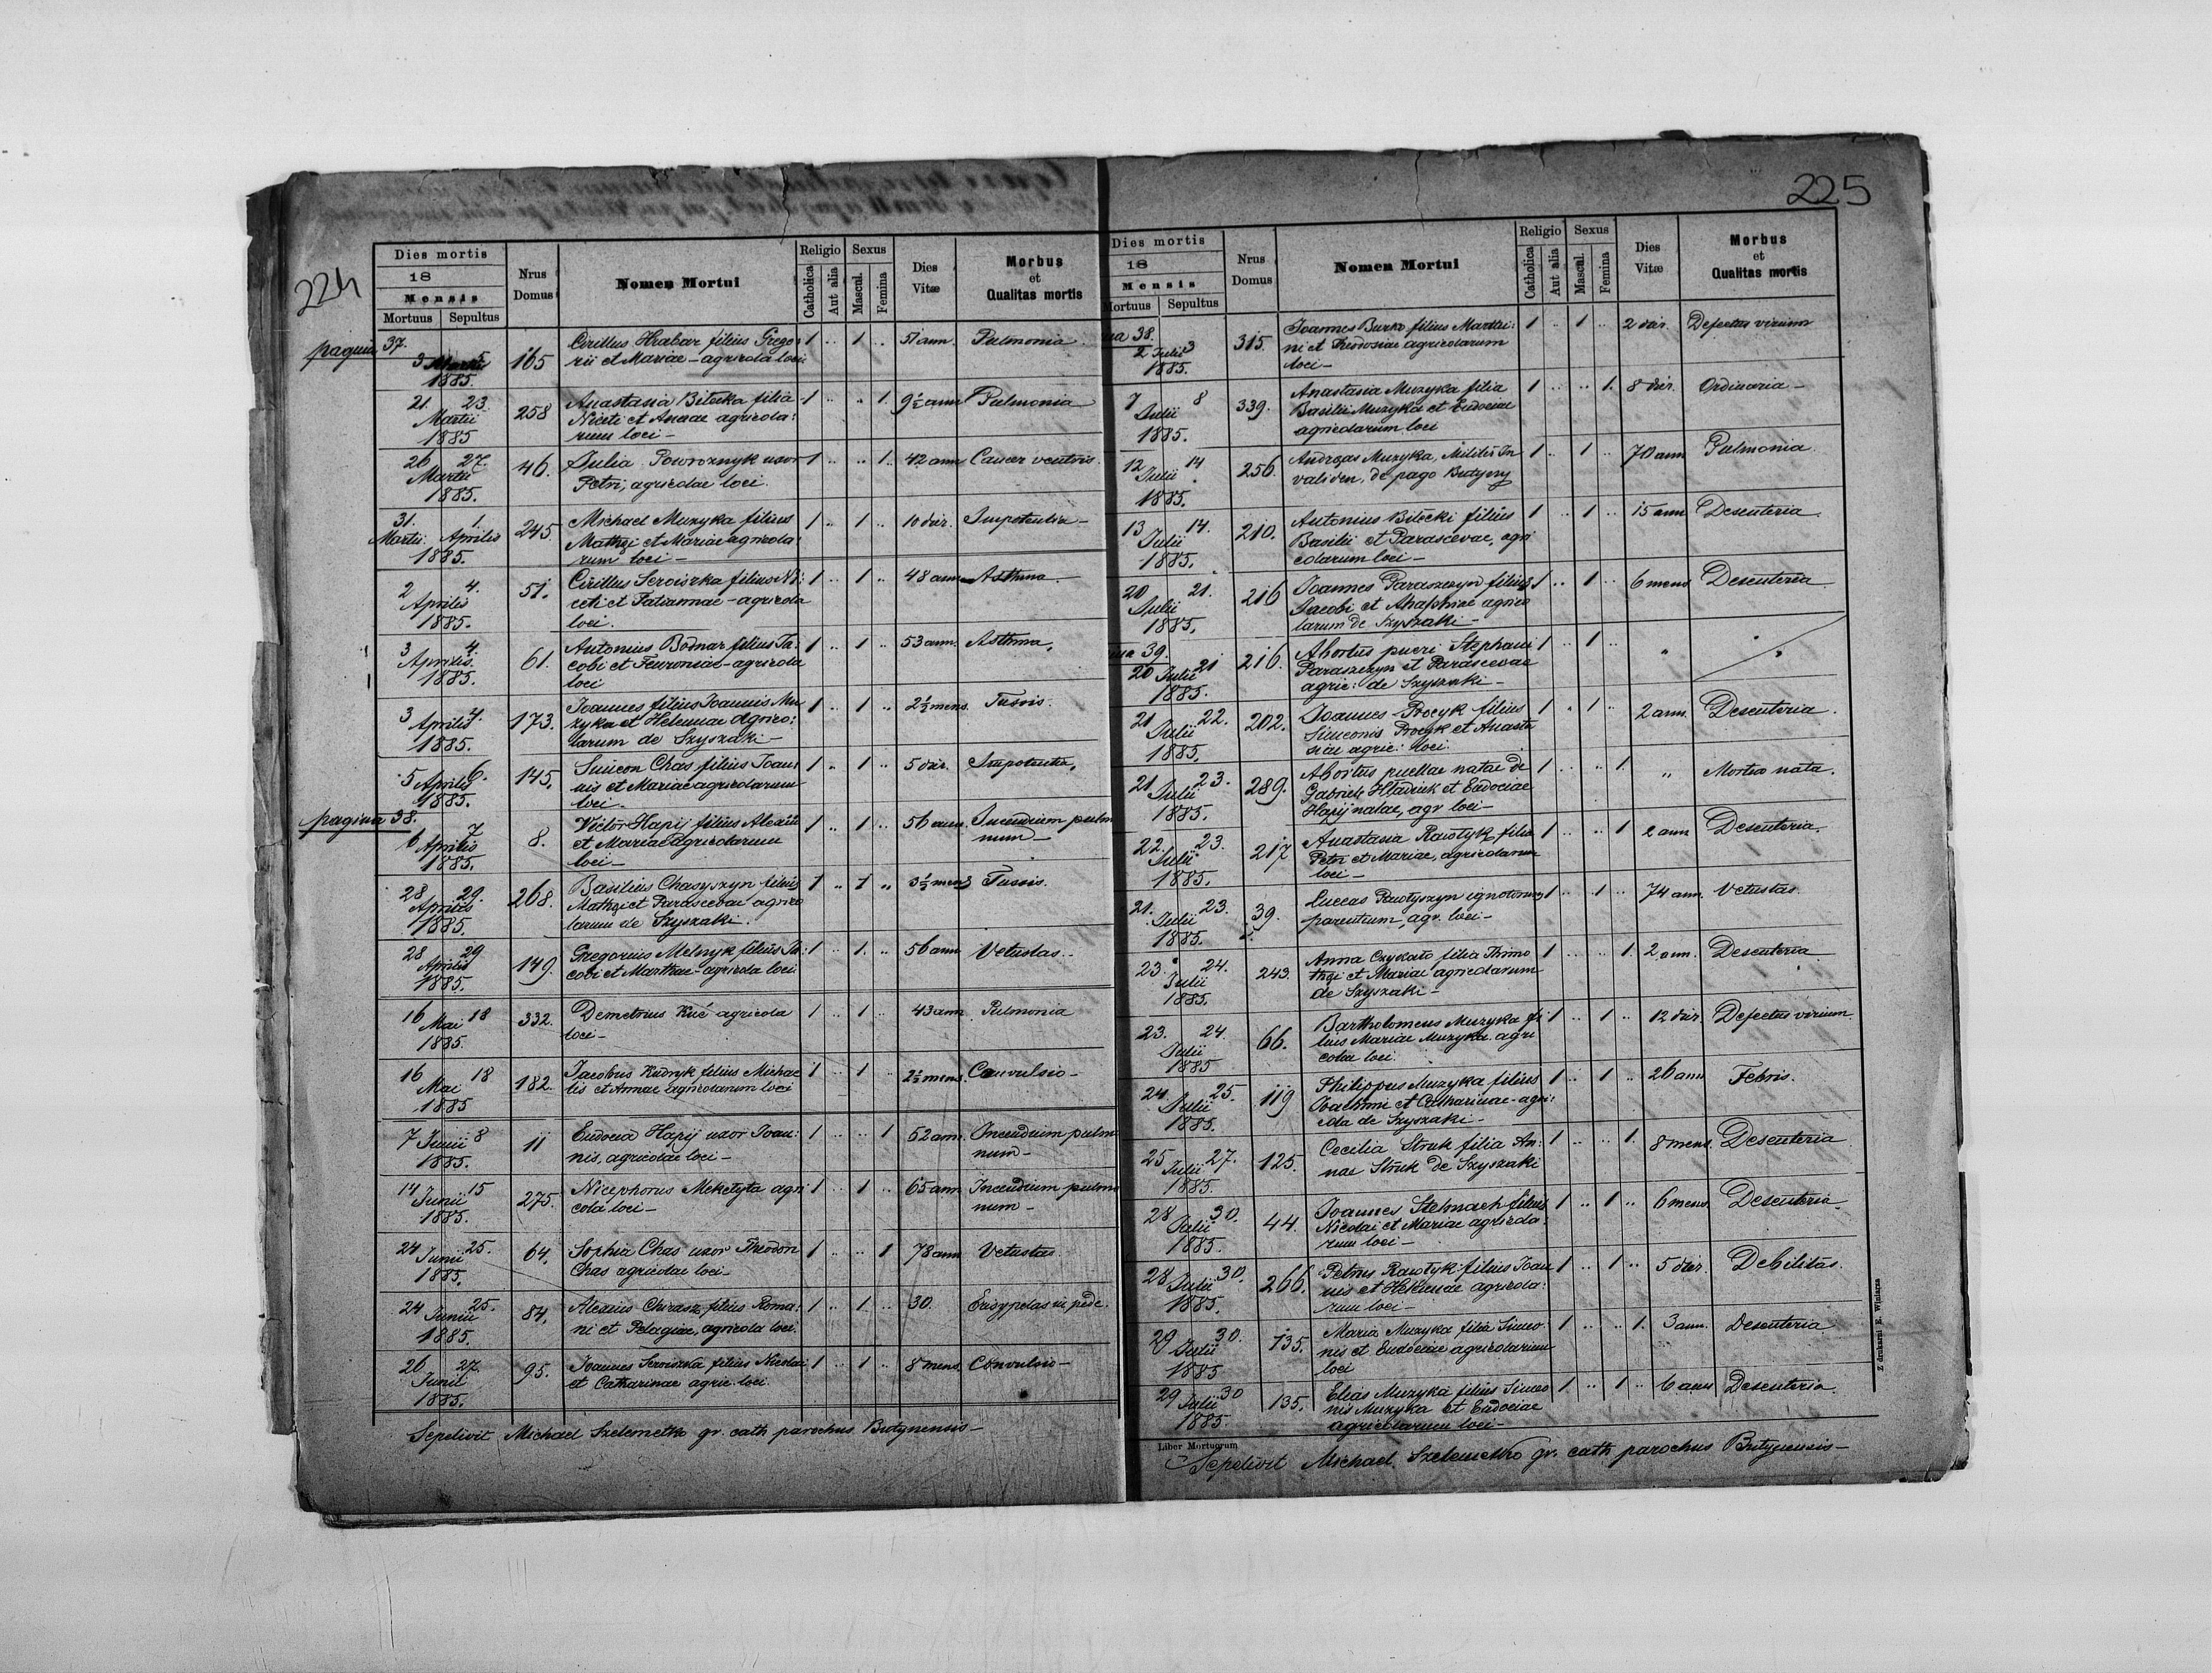 224
Dies mortis
18
Mensis
Mortuus Sepultus
Nrus Domus
Nomen Mortui
Religio
Catholica
Aut alia
Sexus
Mascul.
Femina
Dies Vitæ
Morbus et Qualitas mortis
pagina 37.
3 5 1885. 165 Cirillus Hrabar filius Grego: 1 .. 1 .. 51 ann. Pulmonia
rii et Mariae - agricola loci
21. 23. Martii 1885 258 Anastasia Bilecka filia 1 .. .. 1 9½ ann Pulmonia
Niceti et Annae agricola:
rum loci -
26 27. Martii 1885. 46. Julia Powroznyk uxor 1 .. .. 1 .. 42 ann Cancer ventris.
Petri, agricolae loci.
31. Martii 1. Aprilis 1885. 245. Michael Muzyka filius 1 .. 1 .. 10 dier. Impotentia -
Mathei et Mariae agricola:
rum loci -
2 4. Aprilis 1885. 51. Cirillus Serwiszka filius Ni: 1 .. 1 .. 48 ann Asthma.
ceti et Tatiannae - agricola
loci.
3 4. Aprilis 1885. 61. Antonius Bodnar filius Ja: 1 .. 1 .. 53 ann. Asthma.
cobi et Feuroniae - agricola
loci
3 4. Aprilis 1885. 173. Joannes filius Joannis Mu 1 .. 1 .. 2½ mens. Tussis.
zyka et Helenae agrico:
larum de Szyszaki -
5 6. Aprilis 1885. 145. Simeon Chas filius Joan 1 .. 1 .. 5 dier. Impotentia.
nis et Mariae agricolarum
loci.
pagina 38.
6 7 Aprilis 1885. 8. Victor Hapij filius Alexii 1 .. 1 .. 56 ann. Incendium pulm
et Mariae agricolarum num -
loci -
28 29. Aprilis 1885. 268. Basilius Chasyszyn filius 1 .. 1 .. 3½ mens Tussis.
Mathei et Parascevae agrico
larum de Szyszaki.
28 29 Aprilis 1885. 149. Gregorius Melnyk filius Ja: 1 .. 1. .. 56 ann Vetustas.
cobi et Marthae - agricola loci
16 18 Mai 1885. 332. Demetrius Kuć agricola 1 .. 1 .. 43 ann Pulmonia
loci -
16 18 Mai 1885 182. Jacobus Kudryk filius Michae 1 .. 1 .. 2½ mens. Convulsio -
lis et Annae agricolarum loci
7 8 Junii 1885. 11 Eudocia Hapij uxor Joan: 1 .. .. 1 62 ann. Incendium pulm
nis, agricolae loci - num -
14 15 Junii 1885. 275. Nicephorus Meketyta agri 1 .. 1 .. 65 ann Incendium pulmo
cola loci - num -
24 25. Junii 1885. 64. Sophia Chas uxor Theodori 1 .. .. 1 78 ann Vetustas
Chas agricolae loci -
24 25. Junii 1885. 84. Alexius Chirasz filius Roma: 1 .. 1 .. 30. Erisypelas in pede.
ni et Pelagiae, agricola loci.
26 27. Junii 1885. 95. Joannes Serwiszka filius Nicolai 1 .. 1 .. 8 mens. Convulsio -
et Catharinae agric. loci.
Sepelivit Michael Szelemetko gr. cath parochus Butynensis -
225
Dies mortis
18
Mensis
Mortuus Sepultus
Nrus Domus
Nomen Mortui
Religio
Catholica
Aut alia
Sexus
Mascul.
Femina
Dies Vitæ
Morbus et Qualitas mortis
38.
2 3 Julii 1885. 315. Joannes Burko filius Martini: 1 .. 1 .. 2 dier. Defectus virium
ni et Theodosiae agricolarum
loci -
7 8 Julii 1885. 339. Anastasia Muzyka filia 1 .. .. 1. 8 dier. Ordinaria -
Basilii Muzyka et Eudociae
agricolarum loci
12 14 Julii 1885. 256. Andreas Muzyka, Militis In 1 .. 1 .. 70 ann Pulmonia.
validen, de pago Butyny
13 14. Julii 1885. 210. Antonius Bilecki filius 1 .. 1 .. 15 ann Desenteria.
Basilii et Parascevae, agri
colarum loci -
20 21. Julii 1885. 216 Joannes Paraszczyn filius 1 .. 1 .. 6 mens Desenteria
Jacobi et Ahaphiae agrico
larum de Szyszaki -
39.
20 21 Julii 1885. 216. Abortus pueri Stephani 1 .. 1 .. "
Paraszczyn et Parascevae
agric: de Szyszaki -
21 22. Julii 1885. 202. Joannes Procyk filius 1 .. 1 .. 2 ann. Desenteria.
Simeonis Procyk et Anasta
siae agric: loci.
21 23. Julii 1885. 289. Abortus puellae natae de 1 .. .. 1. " Mortua nata.
Gabriele Hładiuk et Eudociae
Hapij natae, agr loci -
22. 23. Julii 1885. 217 Anastasia Rawłyk, filia 1 .. .. 1 2 ann Desenteria.
Petri et Mariae, agricolarum
loci -
21. 23. Julii 1885. 39. Luccas Rawłyszyn ignotorum 1 .. 1 .. 74 ann. Vetustas.
parentium, agr. loci -
23. 24. Julii 1885. 243. Anna Czykało filia Thimo 1 .. .. 1. 2 ann. Desenteria
thei et Mariae agricolarum
de Szyszaki -
23. 24. Julii 1885 66. Bartholomeus Muzyka fi 1 .. 1 .. 12 dier. Defectus virium.
lius Mariae Muzyka agri
colae loci.
24. 25. Julii 1885. 119 Philippus Muzyka filius 1 .. 1 .. 26 ann Febris.
Joachimi et Catharinae - agri:
cola de Szyszaki -
25 27. Julii 1885. 125. Cecilia Struk filia An: 1 .. .. 1. 8 mens. Desenteria
nae Struk de Szyszaki
28 30. Julii 1885. 44. Joannes Stelmach filius 1 .. 1 .. 6 mens. Desenteria.
Nicolai et Mariae agricola:
rum loci -
28 30. Julii 1885. 266. Petrus Rawłyk filius Joan 1 .. 1 .. 5 dier. Debilitas.
nis et Helenae agricola:
rum loci -
29 30. Julii 1885 135. Maria Muzyka filia Simeo 1 .. .. 1. 3 ann. Desenteria
nis et Eudociae agricolarum
loci
29 30 Julii 1885 135. Elias Muzyka filius Simeo 1 .. 1 .. 6 ann Desenteria.
nis Muzyka et Eudociae
agricolarum loci -
Liber Mortuorum
Sepelivit Michael Szelemetko gr. cath parochus Butynensis -
Z drukarni E. Winiarza